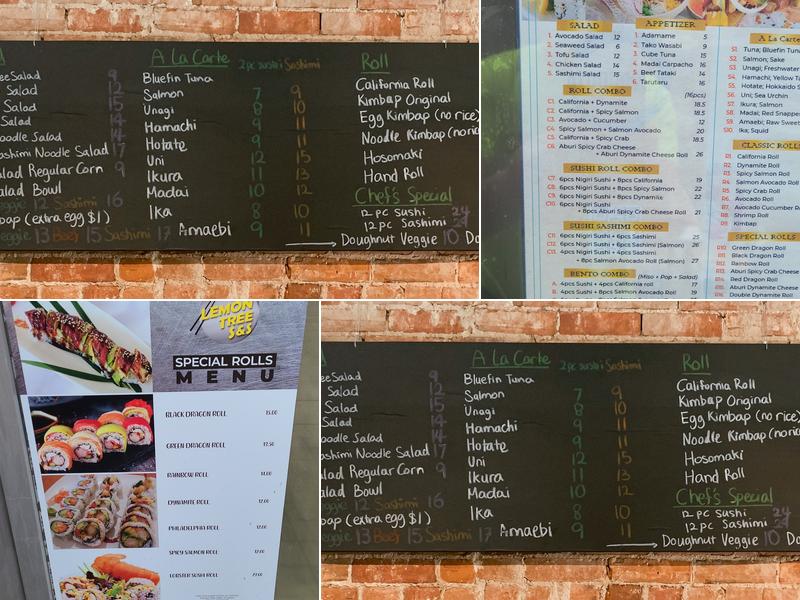 A La Carte 2pc sushi Sashimi Roll
Salad 9 Bluefin Tuna California Roll
Salad 12 Salmon 7 9 Kimbap Original
Salad 15 Unagi 8 10 Egg Kimbap (no rice)
Salad 14 Hamachi 9 11 Noodle Kimbap
Noodle Salad 14 Hotate 9 11 Hosomaki
Noodle Salad 17 Uni 12 15 Hand Roll
Salad Regular Corn 9 Ikura 11 13 Chef's Special
Salad Bowl Madai 10 12 12 pc Sushi 24
Sashimi 16 Ika 8 10 12 pc Sashimi 24
(extra egg $1) Amaebi 9 11 Doughnut Veggie 10
13 Beef 15 Sashimi 17
SALAD
1. Avocado Salad 12
2. Seaweed Salad 6
3. Tofu Salad 12
4. Chicken Salad 14
5. Sashimi Salad 15
APPETIZER
1. Adamame 5
2. Tako Wasabi 9
3. Cube Tuna 15
4. Madai Carpacho 16
5. Beef Tataki 14
6. Tarutaru 16
ROLL COMBO (16pcs)
C1. California + Dynamite 18.5
C2. California + Spicy Salmon 18.5
C3. Avocado + Cucumber 12
C4. Spicy Salmon + Salmon Avocado 20
C5. California + Spicy Crab 18.5
C6. Aburi Spicy Crab Cheese
+ Aburi Dynamite Cheese Roll 26
SUSHI ROLL COMBO
C7. 6pcs Nigiri Sushi + 8pcs California 19
C8. 6pcs Nigiri Sushi + 8pcs Spicy Salmon 22
C9. 6pcs Nigiri Sushi + 8pcs Dynamite 22
C10. 6pcs Nigiri Sushi
+ 8pcs Aburi Spicy Crab Cheese Roll 21
SUSHI SASHIMI COMBO
C11. 6pcs Nigiri Sushi + 6pcs Sashimi 25
C12. 6pcs Nigiri Sushi + 6pcs Sashimi (Salmon) 26
C13. 4pcs Nigiri Sushi + 4pcs Sashimi
+ 8pc Salmon Avocado Roll (Salmon) 27
BENTO COMBO (Miso + Pop + Salad)
A. 4pcs Sushi + 4pcs California roll 17
B. 4pcs Sushi + 8pcs Salmon Avocado Roll 19
A La Carte
S1. Tuna; Bluefin Tuna
S2. Salmon; Sake
S3. Unagi; Freshwater
S4. Hamachi; Yellow
S5. Hotate; Hokkaido
S6. Uni; Sea Urchin
S7. Ikura; Salmon
S8. Madai; Red Snapper
S9. Amaebi; Raw Sweet
S10. Ika; Squid
CLASSIC ROLLS
R1. California Roll
R2. Dynamite Roll
R3. Spicy Salmon Roll
R4. Salmon Avocado Roll
R5. Spicy Crab Roll
R6. Avocado Roll
R7. Avocado Cucumber
R8. Shrimp Roll
R9. Kimbap
SPECIAL ROLLS
R10. Green Dragon Roll
R11. Black Dragon Roll
R12. Rainbow Roll
R13. Aburi Spicy Crab Cheese
R14. Red Dragon Roll
R15. Aburi Dynamite Cheese
R16. Double Dynamite Roll
LEMON
TREE
S&S
SPECIAL ROLLS
MENU
BLACK DRAGON ROLL 15.00
GREEN DRAGON ROLL 17.50
RAINBOW ROLL 14.00
DYNAMITE ROLL 12.00
PHILADELPHIA ROLL 12.00
SPICY SALMON ROLL 12.00
LOBSTER SUSHI ROLL 27.00
A La Carte 2pc sushi Sashimi Roll
Salad 9 Bluefin Tuna California Roll
Salad 12 Salmon 7 9 Kimbap Original
Salad 15 Unagi 8 10 Egg Kimbap (no rice)
Salad 14 Hamachi 9 11 Noodle Kimbap
Salad 14 Hotate 9 11 Hosomaki
Noodle Salad 17 Uni 12 15 Hand Roll
Regular Corn 9 Ikura 11 13 Chef's Special
Salad Bowl Madai 10 12 12 pc Sushi 24
12 Sashimi 16 Ika 8 10 12 pc Sashimi 24
(extra egg $1) Amaebi 9 11 Doughnut Veggie 10
13 Beef 15 Sashimi 17